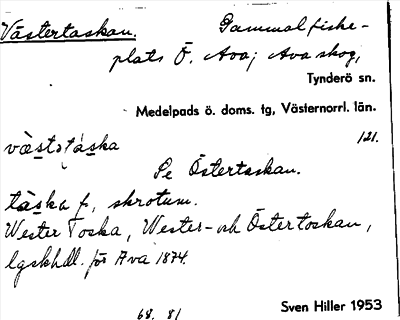 Västertaskan. Gammal fiske-
plats Ö. Ava; Ava skog,
Tynderö sn.
Medelpads ö. doms. tg, Västernorrl. län.
121.
væstəta̱ska
Se Östertaskan.
ta̱ska f, skrotum.
Wester Toska, Wester- och Östertoskan,
lgskhdl. för Ava 1874.
68. 81
Sven Hiller 1953